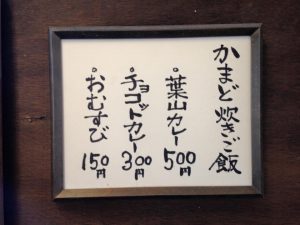 かまど炊きご飯
。葉山カレー500円
。チョコットカレー300円
。おむすび150円